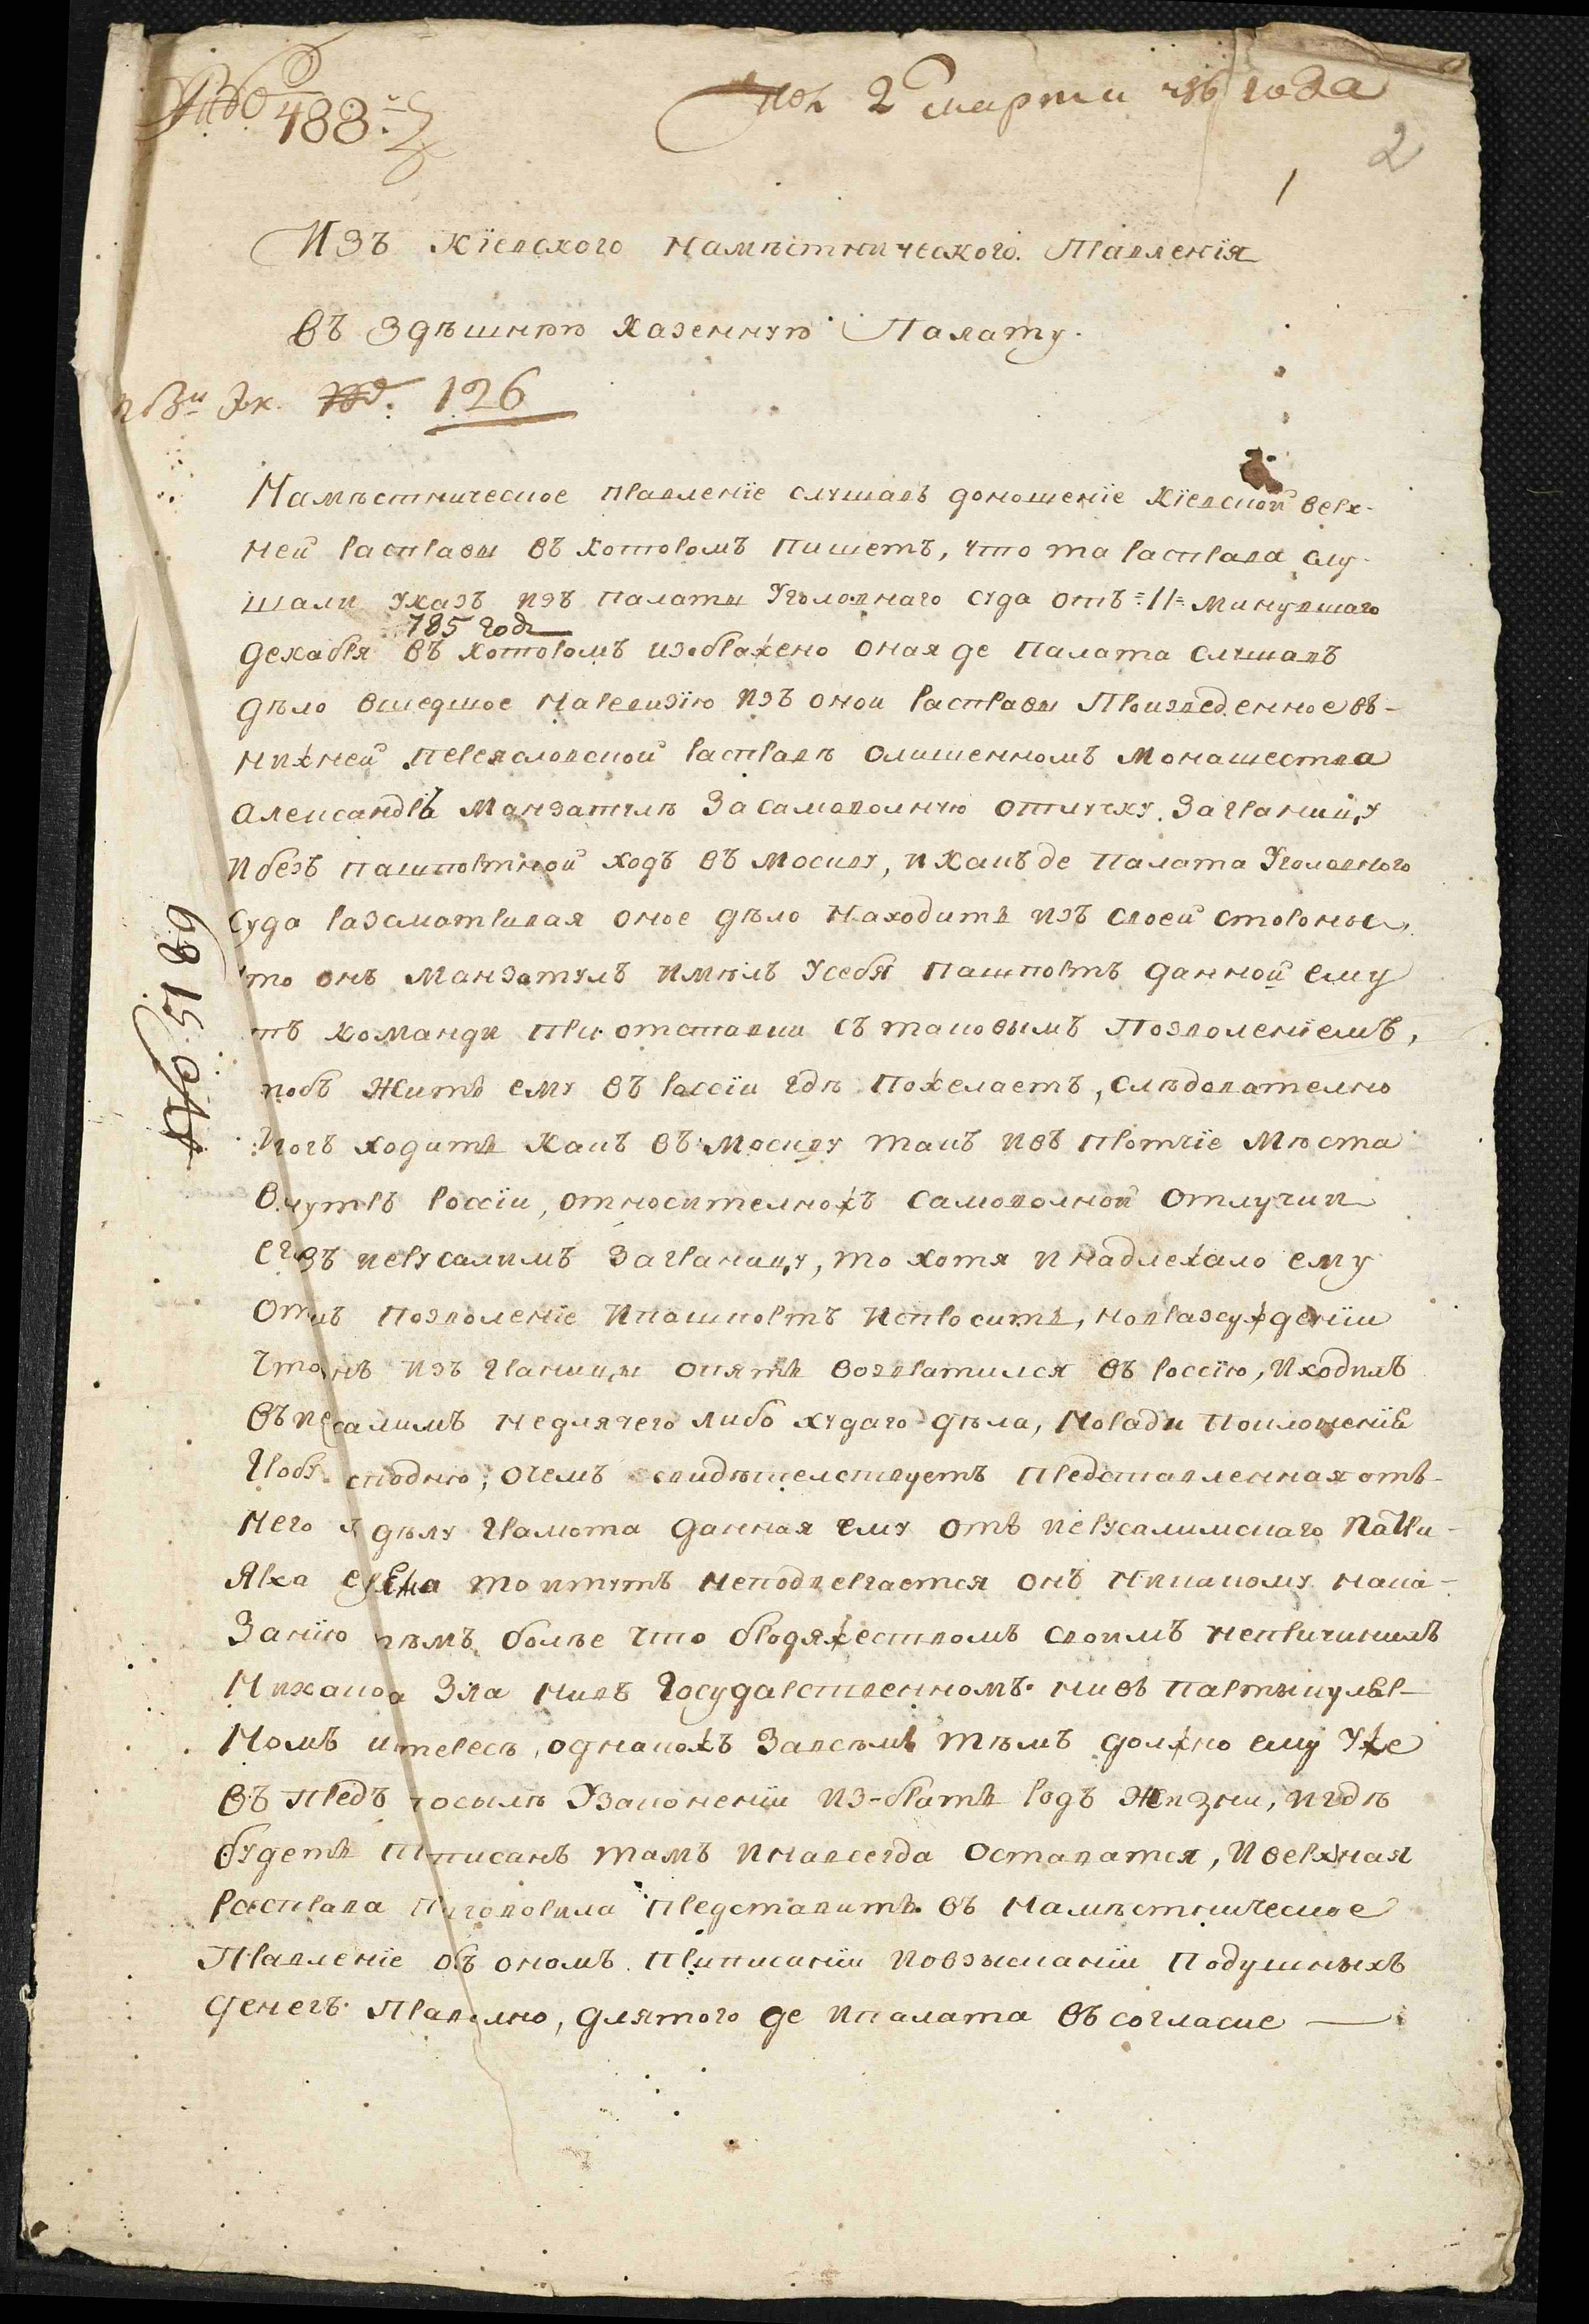 № 488
пол 2 марта 786 года
2
1
Изъ Кіевского намѣстнического Правленія
въ здѣшнюю казенную Палату.
126
Намѣстническое правленіе слушавъ доношеніе Кіевской верх-
ней расправы въ котором пишетъ, что та расправа слу-
шали указъ изъ палаты Уголовнаго суда отъ =11= минувшаго
785 году
декабря въ которомъ изображено оная де Палата слушавъ
дѣло вшедшое наревизію изъ оной расправы Произведенное въ-
нижней переясловской расправѣ олишенномъ монашества
александрѣ Манзатулѣ за самоволную отлучку заграницу
и безъ пашпортной ходъ въ москву, и какъ де палата Уголовного
Суда разсматривая оное дѣло находитъ изъ своей стороны
то онъ Манзатулъ имѣлъ усебя пашпортъ данной ему
тъ команди при отставки съ таковымъ Позволеніемъ,
тобъ жить ему въ рассіи гдѣ пожелаетъ, слѣдователно
могъ ходить какъ въ москву такъ ивъ протчіе мѣста
внутръ россіи, относителножъ самоволной отлучки
егвъ иерусалимъ заграницу, то хотя и надлежало ему
отъ позволеніе ипашпортъ испросить, новразсужденіи
что нъ изъ границы опять возвратился въ россію, иходилъ
въ иесалимъ недлячего либо худаго дѣла, норади Поклоненіе
Гробу сподню, очемъ свидѣтелствуетъ представленная отъ-
него к дѣлу грамота данная ему отъ иерусалимскаго патри-
Ярха то итутъ неподвергается онъ никакому нака-
занію тѣмъ болѣе что бродяжествомъ своимъ непричинилъ
никакоа зла нивъ Государственномъ нивъ партыкуляр-
номъ итересѣ, однакожъ завсѣмъ тѣмъ должно ему уже
въ предъ посылѣ узаконеніи из-брать родъ жизни, игдѣ
будетъ приписанъ тамъ инавсегда оставатся, и верхная
расправа приговорила представить въ намѣстническое
Правленіе объ ономъ приписаніи иовзысканіи подушныхъ
денегъ правилно, длятого де ипалата въ согласие —